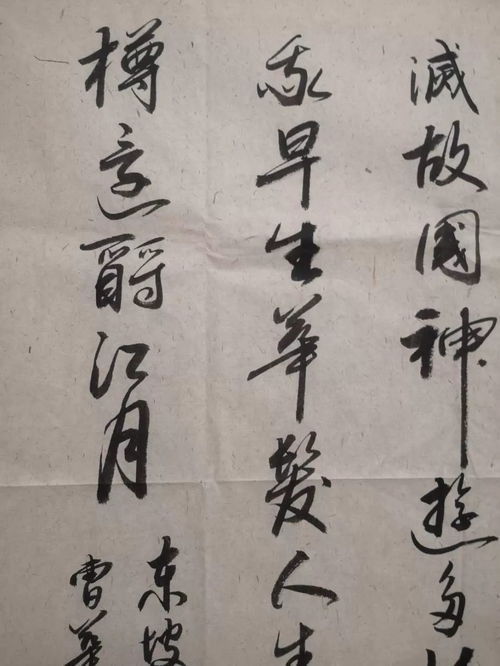 滅故國神遊多
我早生華髮人生
樽還酹江月
东坡
曹